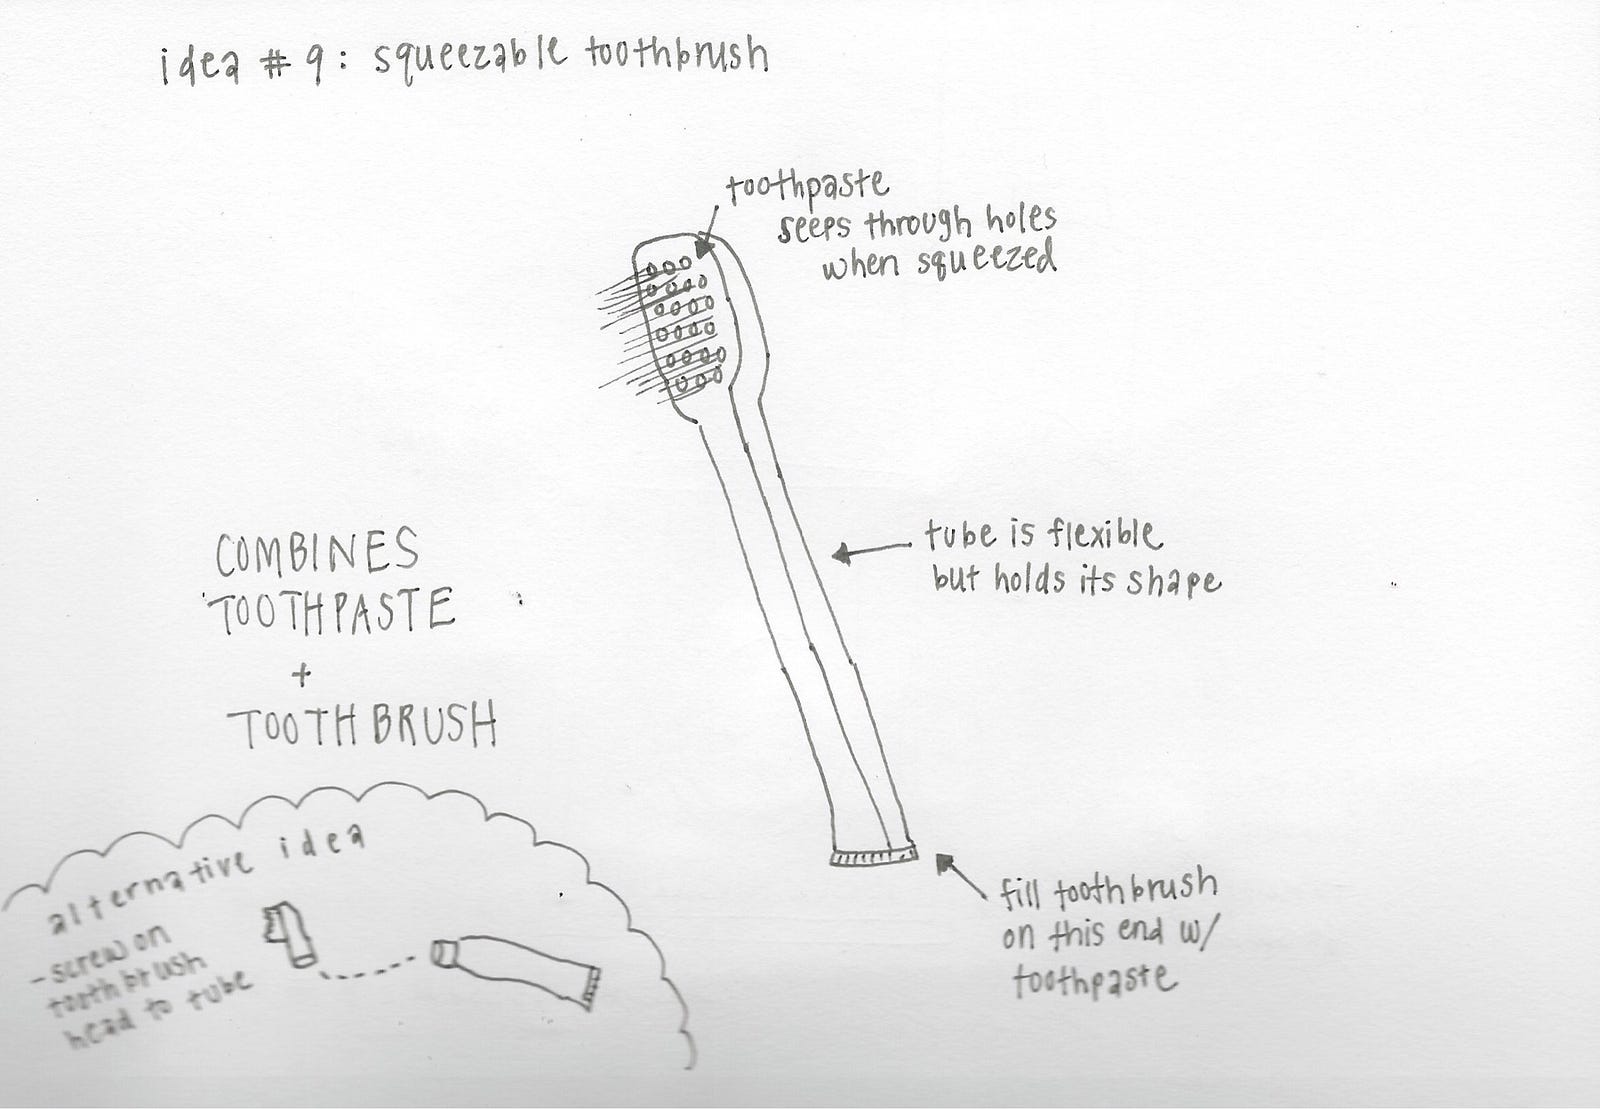 idea # 9: squeezable toothbrush
toothpaste
seeps through holes
when squeezed
tube is flexible
but holds its shape
COMBINES
TOOTHPASTE
+
TOOTHBRUSH
fill toothbrush
on this end w/
toothpaste
alternative idea
- screw on
toothbrush
head to tube